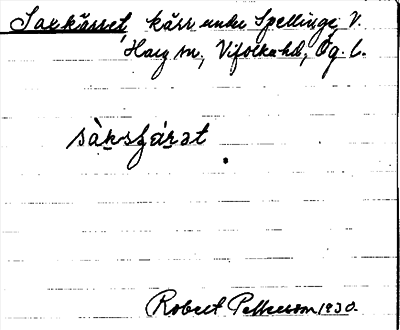 Saxkärret, kärr under Spellinge, V.
Harg sn, Vifolka hd, Ög. l.
sàksʐárət
Robert Petterson 1930.